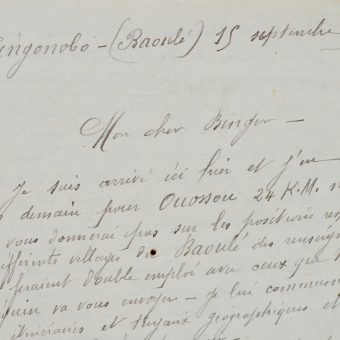 (Baoulé) 15 septembre
Mon cher Binger —
Je suis arrivé ici hier et j'en
demain pour Ouossou 24 K.M.
vous donnerai pas sur les positions
villages du Baoulé des
feraient double emploi avec ceux que
va vous envoyer — Je lui
itinéraires et travaux géographiques et